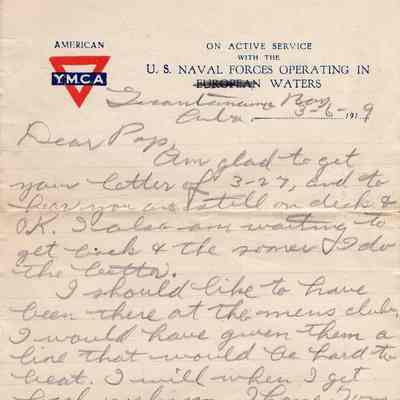 AMERICAN
YMCA
ON ACTIVE SERVICE
WITH THE
U. S. NAVAL FORCES OPERATING IN
EUROPEAN WATERS
Guantanamo Bay
Cuba, 3-6-1919
Dear Pop,
Am glad to get
your letter of 3-27, and to
hear you are still on deck &
OK. I also am waiting to
get back & the sooner I do
the betta.
I should like to have
been there at the mens club,
I would have given them a
line that would be hard to
beat. I will when I get